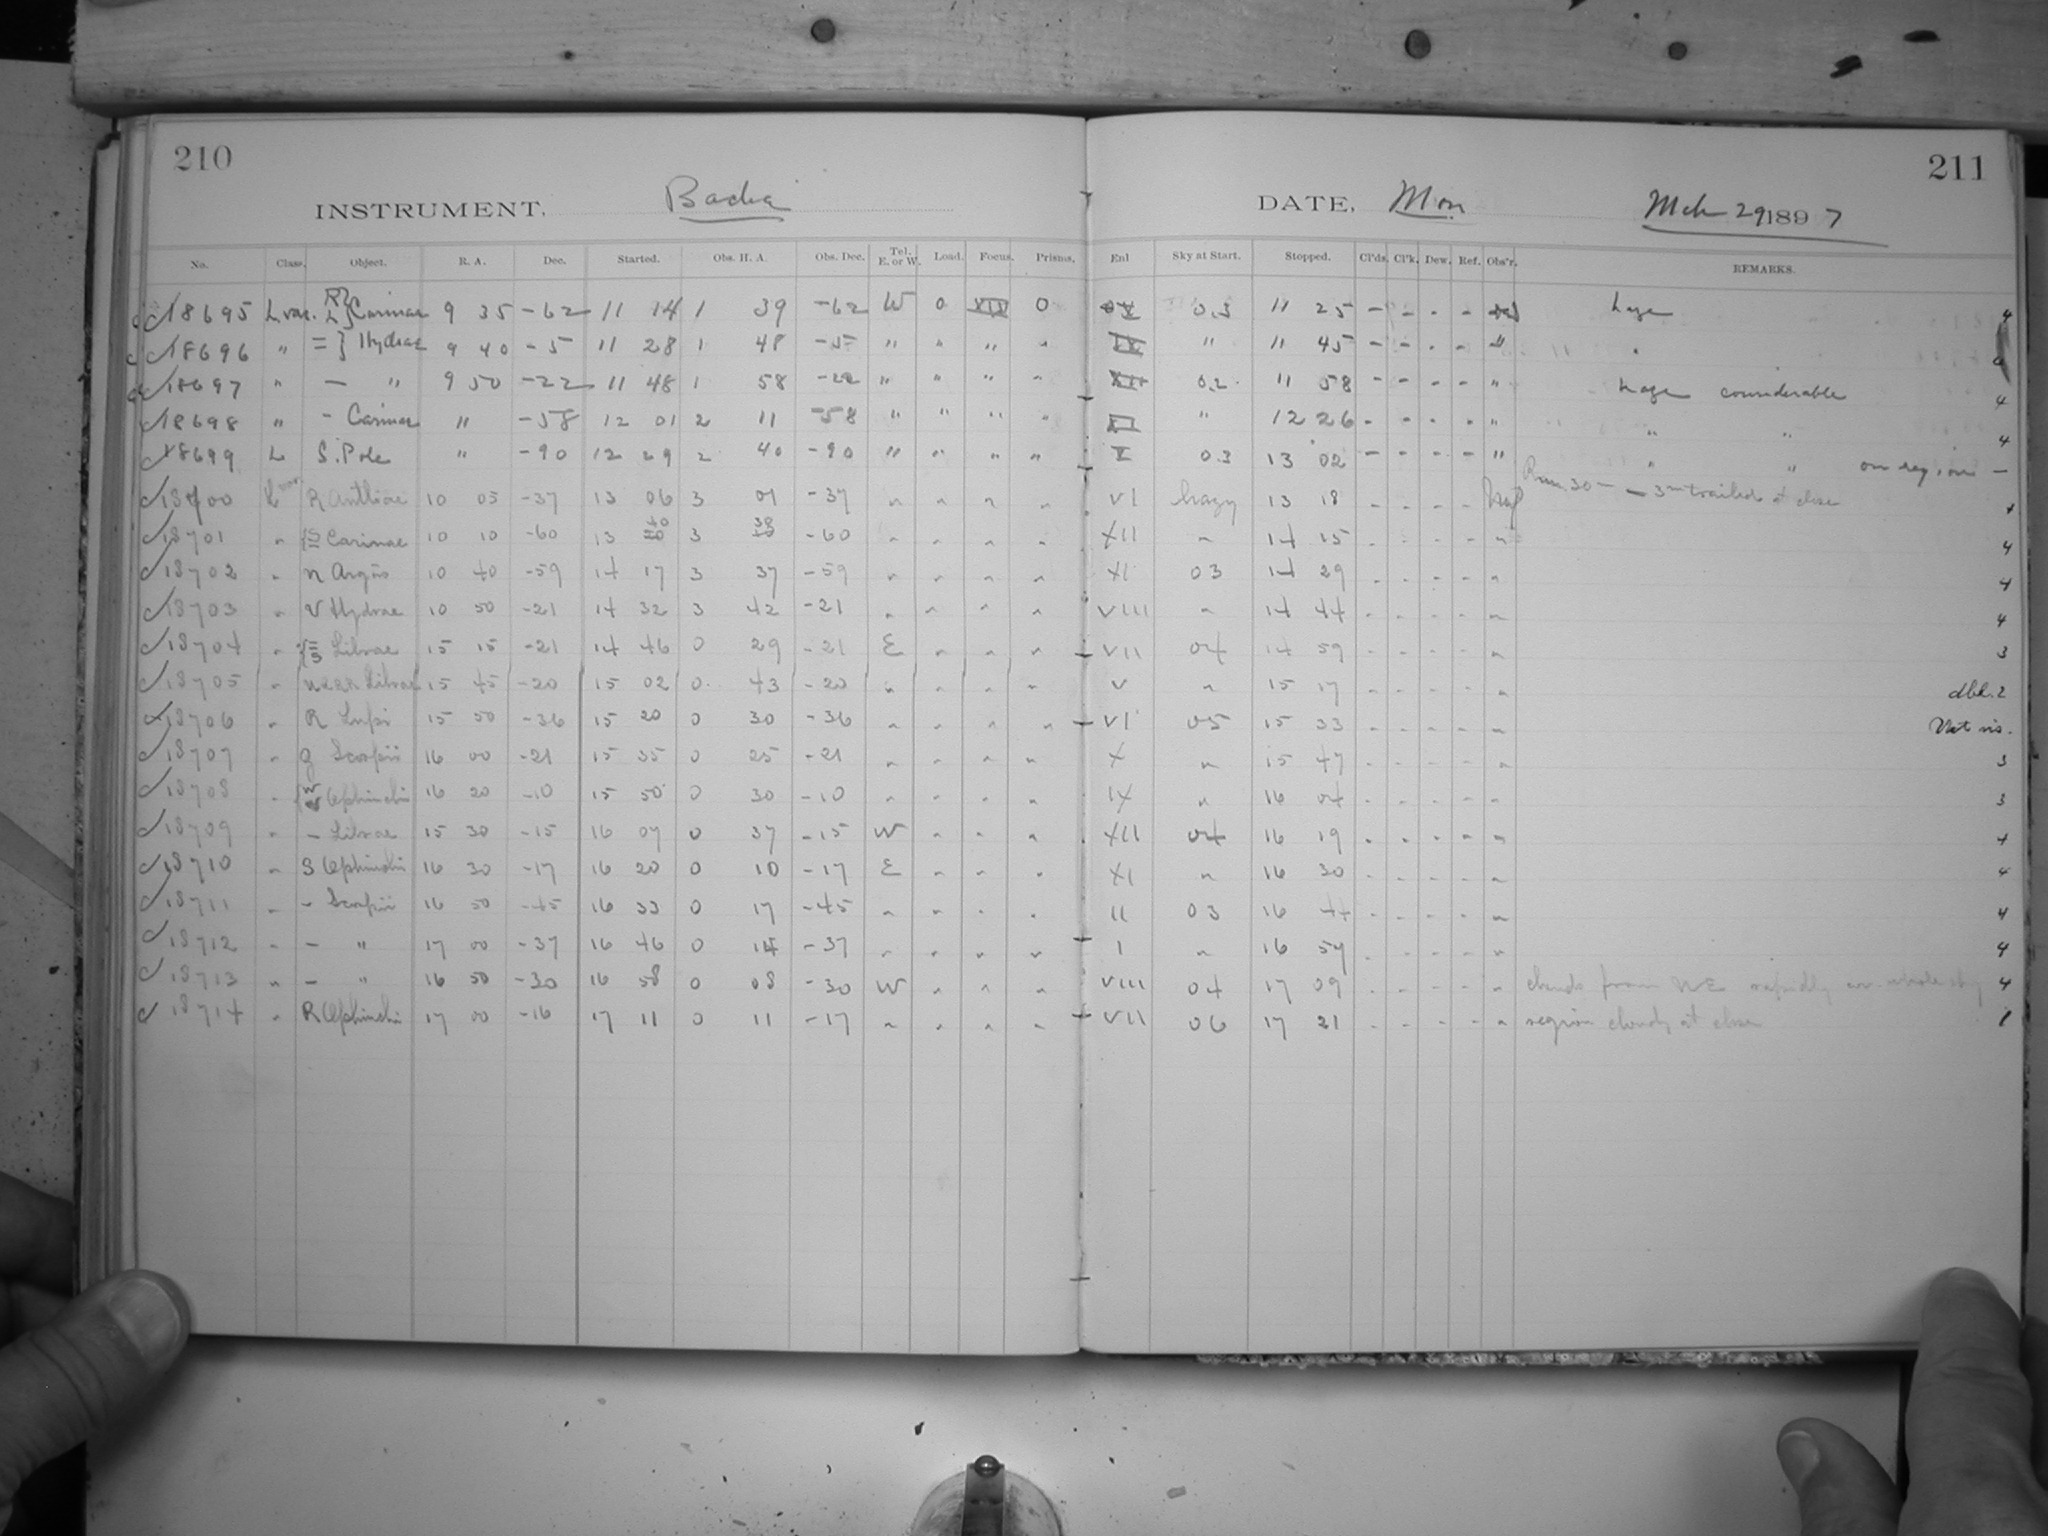 210
211
INSTRUMENT. Bache
DATE, Mon Mch 29 1897
No. Class. Object. R. A. Dec. Started. Obs. H. A. Obs. Dec. Tel. E. or W. Load. Focus. Prisms. Enl Sky at Start. Stopped. Cl'ds. Cl'k. Dew. Ref. Obs'r. REMARKS.
18695 L var. R L } Carinae 9 35 -62 11 14 1 39 -62 W 0 XIV 0 0.3 11 25 - - - - haze 4
18696 " = } Hydrae 9 40 -5 11 28 1 48 -5 " " " " IX " 11 45 - - - - " "
18697 " - " 9 50 -22 11 48 1 58 -22 " " " " XII 0.2 11 58 - - - - " haze considerable 4
18698 " - Carinae " -58 12 01 2 11 -58 " " " " " 12 26 - - - - " " " 4
18699 L S. Pole " -90 12 29 2 40 -90 " " " " X 0.3 13 02 - - - - " " " on region -
18700 L var R Antliae 10 05 -37 13 06 3 01 -37 " " " " VI hazy 13 18 - - - - 3m trailed at close 4
18701 " { S = Carinae 10 10 -60 13 40 3 38 -60 " " " " XII " 14 15 - - - - " 4
18702 " n Argus 10 40 -59 14 17 3 37 -59 " " " " XI 03 14 29 - - - - " 4
18703 " V Hydrae 10 50 -21 14 32 3 42 -21 " " " " VIII " 14 44 - - - - " 4
18704 " { = S Librae 15 15 -21 14 46 0 29 -21 E " " " VII 04 14 59 - - - - " 3
18705 " Librae 15 45 -20 15 02 0 43 -20 " " " " V " 15 17 - - - - " dbl. 2
18706 " R Lupi 15 50 -36 15 20 0 30 -36 " " " " VI 05 15 33 - - - - " Not vis.
18707 " Scorpii 16 00 -21 15 35 0 25 -21 " " " " X " 15 47 - - - - " 3
18708 " { W V Ophiuchi 16 20 -10 15 50 0 30 -10 " " " " IX " 16 04 - - - - " 3
18709 " - Librae 15 30 -15 16 07 0 37 -15 W " " " XII 04 16 19 - - - - " 4
18710 " S Ophiuchi 16 30 -17 16 20 0 10 -17 E " " " XI " 16 30 - - - - " 4
18711 " - Scorpii 16 50 -45 16 33 0 17 -45 " " " " II 03 16 44 - - - - " 4
18712 " - " 17 00 -37 16 46 0 14 -37 " " " " I " 16 57 - - - - " 4
18713 " - " 16 50 -30 16 58 0 08 -30 W " " " VIII 04 17 09 - - - - " clouds from NE rapidly cov. whole sky 4
18714 " R Ophiuchi 17 00 -16 17 11 0 11 -17 " " " " VII 06 17 21 - - - - " region cloudy at close 1